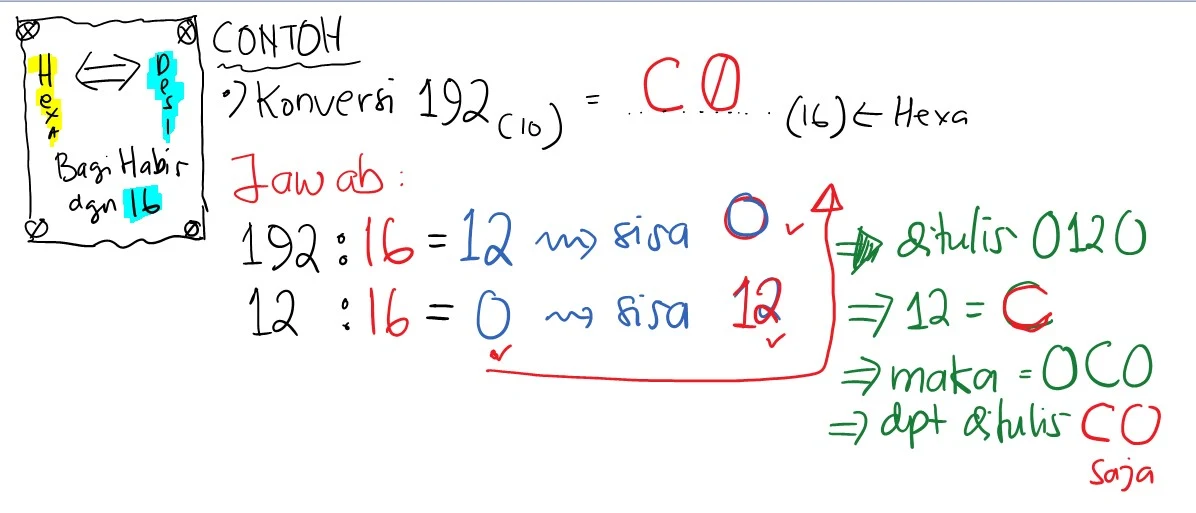 Hexa ⇐⇒ Desi
Bagi Habis
dgn 16
CONTOH
:) Konversi 192 (10) = C0 (16) ← Hexa
Jawab :
192 : 16 = 12 ~> sisa 0 ✓
12 : 16 = 0 ~> sisa 12 ✓
✓
⇒ ditulis 0120
⇒ 12 = C
⇒ maka = 0C0
⇒ dpt ditulis C0
saja